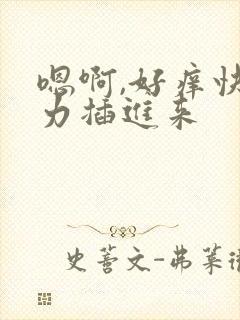 嗯啊,好痒快
力插進来
史蒂文-弗莱彻